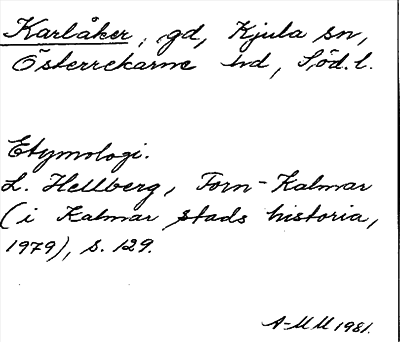 Karlåker, gd, Kjula sn,
Österrekarne hd, Söd. l.
Etymologi.
L. Hellberg, Forn-Kalmar
(i Kalmar stads historia,
1979), s. 129.
A-MM 1981.